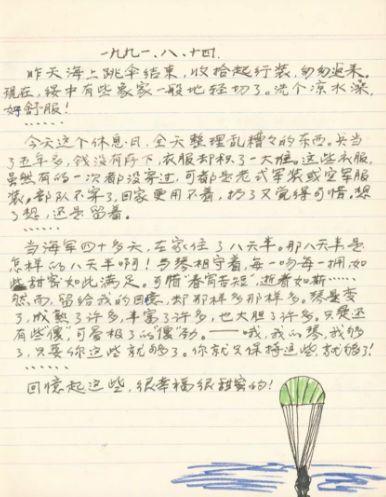 一九九一.八.十四.
昨天海上跳伞结束，收拾起行装，匆匆返来。
现在，绥中有些象家一般地轻切了。洗个凉水澡，
好舒服！
……
今天这个休息日，全天整理乱糟々的东西。兵当
了五年多，钱没有存下，衣服却积了一大堆。这些衣服，
虽然有的一次都没穿过，可都是老式军装或空军服
装，部队不穿了，回家更用不着，扔了又觉得可惜，想
了想，还是留着。
……
当海军四十多天，在家住了八天半。那八天半是
怎样的八天半啊！与琴相守着，每一吻每一拥，如
甜蜜如此满足。可惜"春宵苦短"，逝者如斯……
然而，留给我的回忆，却那样多那样多。琴是变
了，成熟了许多，丰富了许多，也大胆了许多。只是还
有些"傻"，可看极了的"傻"劲。——哦，我的琴，我够
了，只要你这些就够了。你就只保持这些，就够了！
……
回憶起这些，很幸福很甜蜜的！